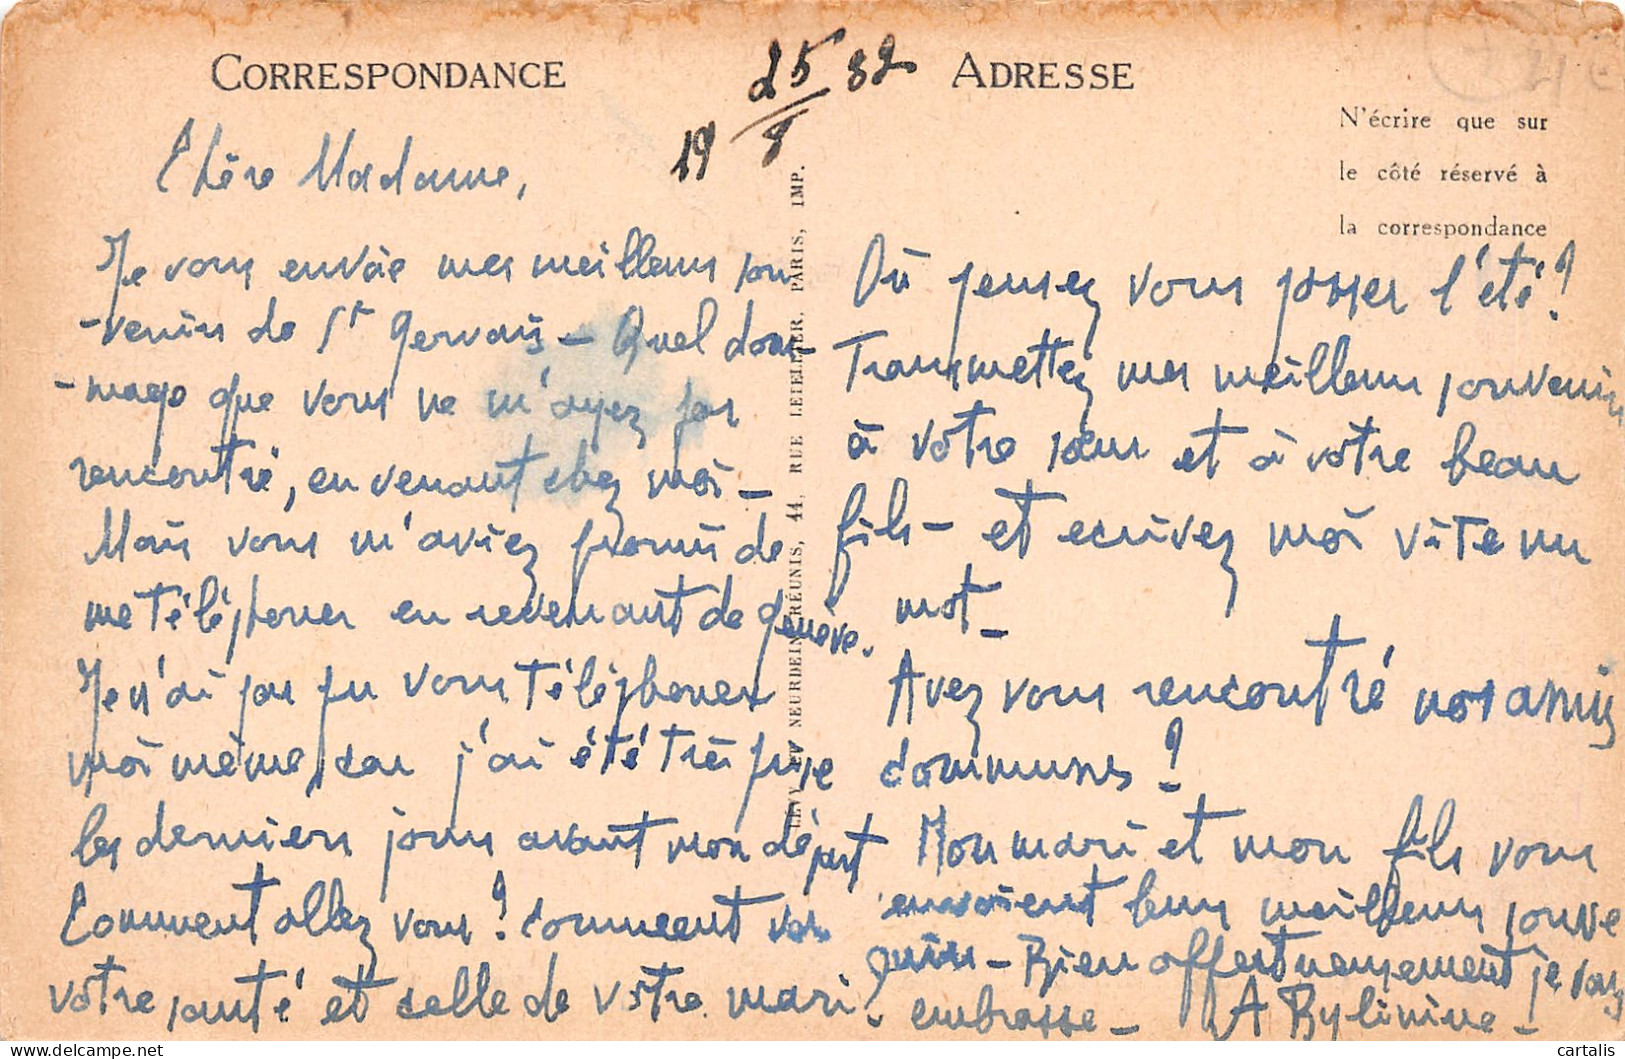 CORRESPONDANCE
19 25/8 32
ADRESSE
N'écrire que sur
le côté réservé à
la correspondance
Chère Madame,
Je vous envoie mes meilleurs sou
-venirs de St Gervais - Quel dom-
-mage que vous ne m'ayez pas
rencontré, en venant chez moi -
Mais vous m'aviez promis de
me téléphoner en revenant de Genève.
Je n'ai pas pu vous téléphoner
moi même, car j'ai été très prise
les derniers jours avant mon départ
Comment allez vous? comment va
votre santé et celle de votre mari?
LEVY ET NEURDEIN RÉUNIS, 44, RUE LETELLIER, PARIS, IMP.
Où pensez vous passer l'été?
Transmettez mes meilleurs souvenirs
à votre sœur et à votre beau
fils - et ecrivez moi vite un
mot -
Avez vous rencontré nos amis
communs?
Mon mari et mon fils vous
envoient leurs meilleurs souve
nirs - Bien affectueusement je vous
embrasse - A Rylinine -
cartalis